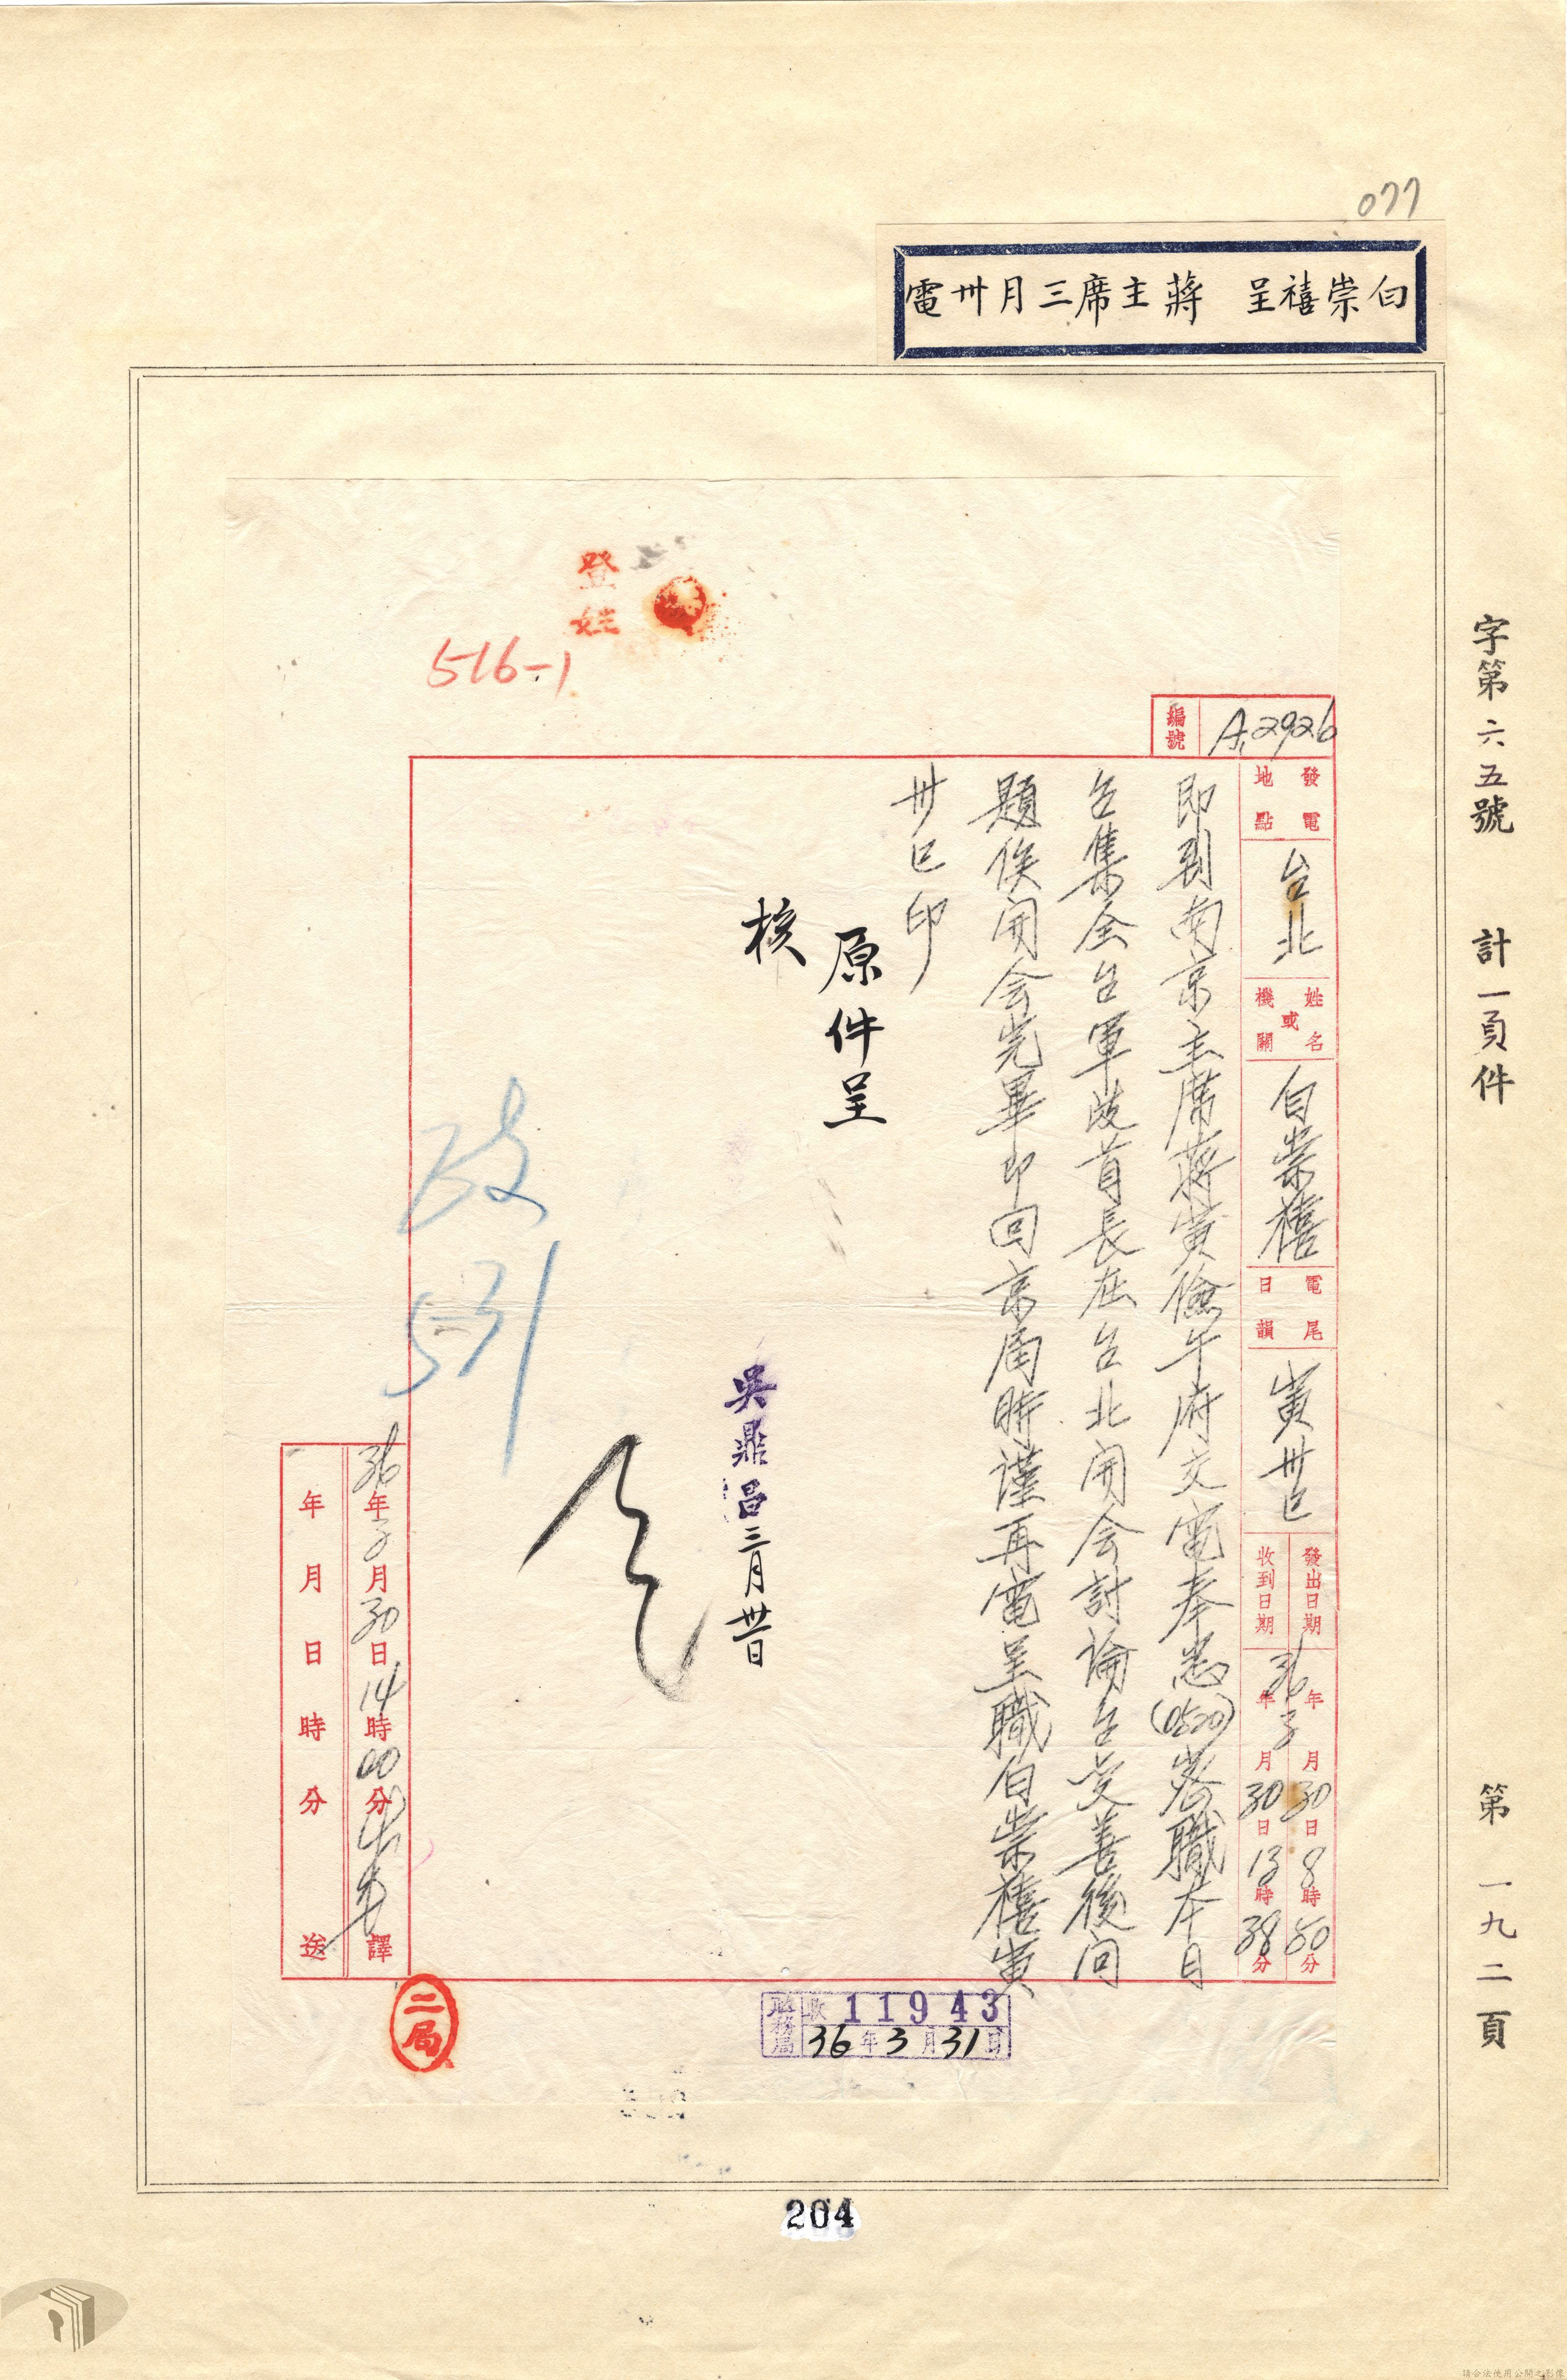 077
白崇禧呈 蔣主席三月卅電
字第六五號 計一頁件 第一九二頁
登
516-1
編號 A.2926
發電地點 台北
姓名或機關 白崇禧
電尾日韻 寅卅巳
發出日期 36年3月30日8時50分
收到日期 年 月30日13時38分
即到南京主席蔣寅儉午府交電奉悉(0520)密職本日
召集全台軍政首長在台北開会討論台灾善後问
題俟開会完畢即回京届時謹再電呈職白崇禧寅
卅巳印
原件呈
核
吳鼎昌 三月卅一日
政
3/31
36年3月30日14時00分 譯
年 月 日 時 分 送
二局
收 11943
36年3月31日
204
請合法使用公開之影像